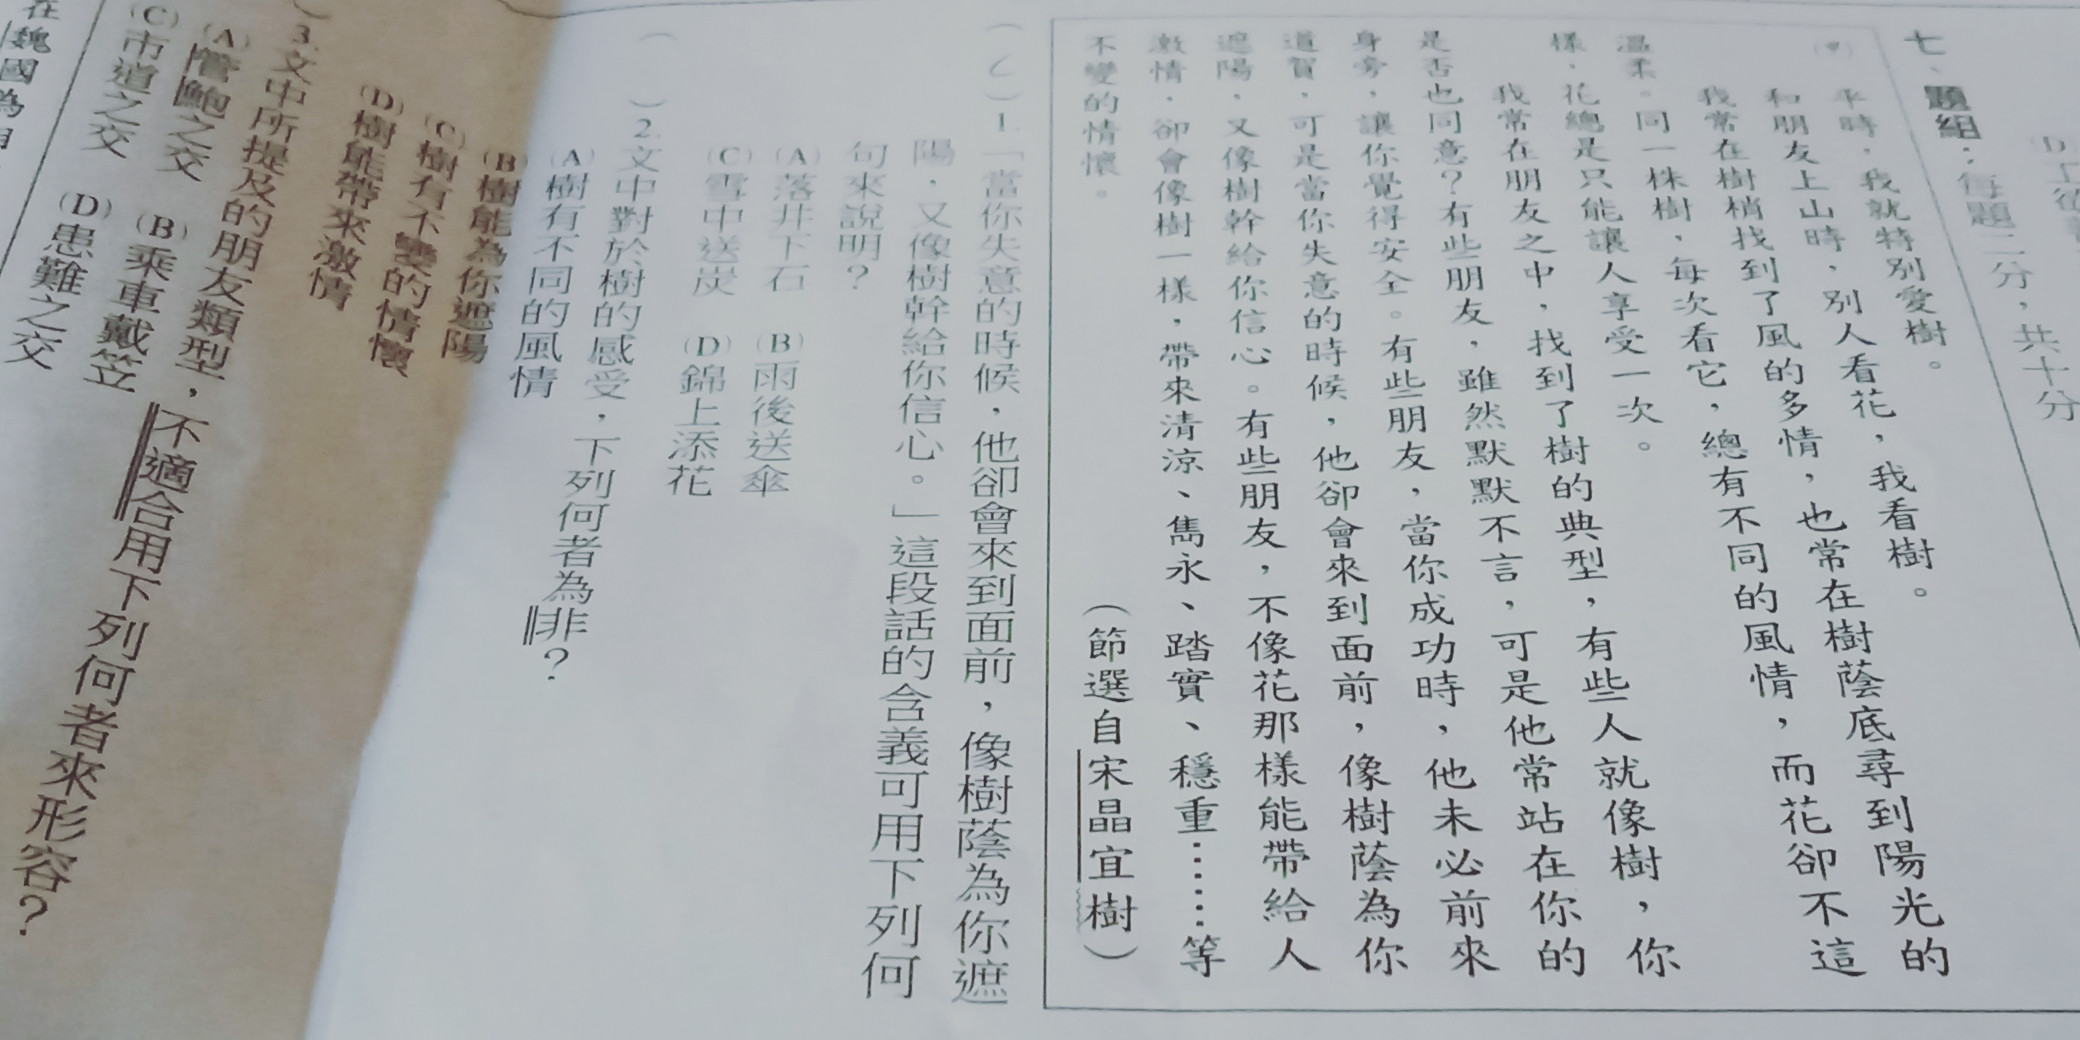 七、題組：每題二分，共十分
(甲)
平時，我就特別愛樹。
和朋友上山時，別人看花，我看樹。
我常在樹梢找到了風的多情，也常在樹蔭底尋到陽光的
溫柔。同一株樹，每次看它，總有不同的風情，而花卻不這
樣，花總是只能讓人享受一次。
我常在朋友之中，找到了樹的典型，有些人就像樹，你
是否也同意？有些朋友，雖然默默不言，可是他常站在你的
身旁，讓你覺得安全。有些朋友，當你成功時，他未必前來
道賀，可是當你失意的時候，他卻會來到面前，像樹蔭為你
遮陽，又像樹幹給你信心。有些朋友，不像花那樣能帶給人
激情，卻會像樹一樣，帶來清涼、雋永、踏實、穩重……等
不變的情懷。
（節選自宋晶宜樹）
( C ) 1.「當你失意的時候，他卻會來到面前，像樹蔭為你遮
陽，又像樹幹給你信心。」這段話的含義可用下列何
句來說明？
(A) 落井下石 (B) 雨後送傘
(C) 雪中送炭 (D) 錦上添花
( ) 2. 文中對於樹的感受，下列何者為非？
(A) 樹有不同的風情
(B) 樹能為你遮陽
(C) 樹有不變的情懷
(D) 樹能帶來激情
) 3. 文中所提及的朋友類型，不適合用下列何者來形容？
(A) 管鮑之交 (B) 乘車戴笠
(C) 市道之交 (D) 患難之交
在魏國為